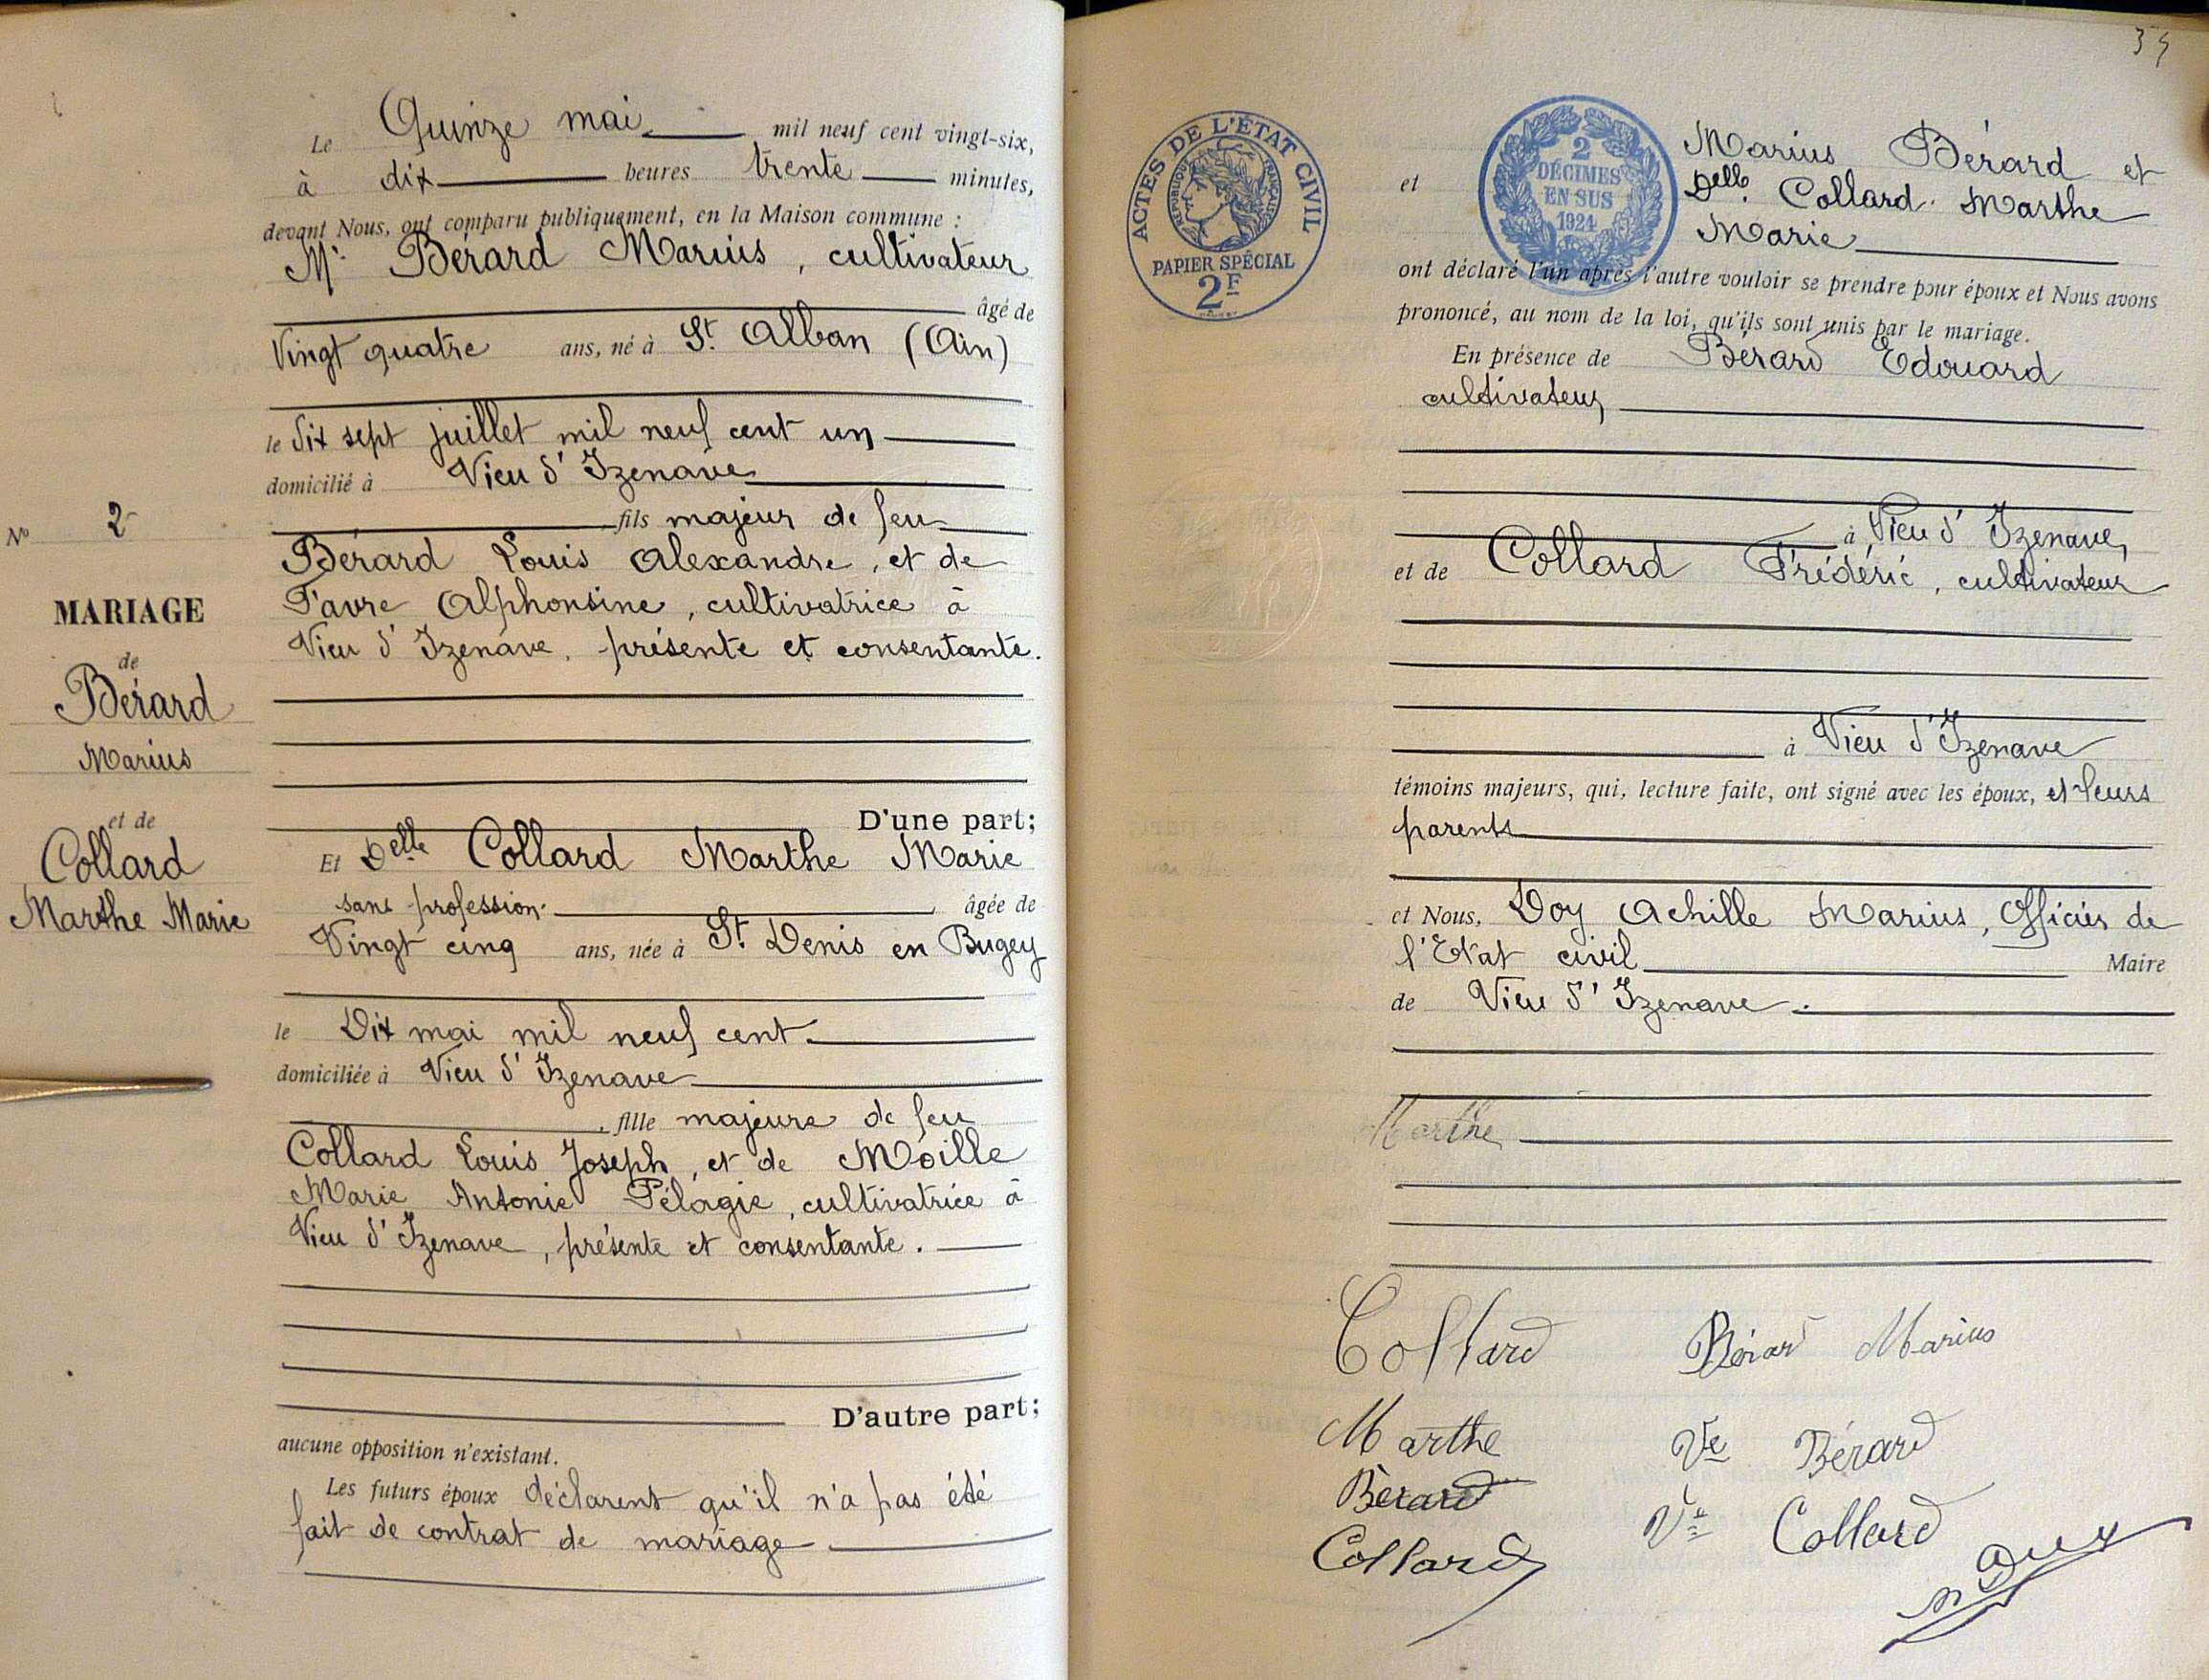 Le Quinze mai mil neuf cent vingt-six,
à dix heures trente minutes,
devant Nous, ont comparu publiquement, en la Maison commune :
Mr. Bérard Marius, cultivateur
âgé de
Vingt quatre ans, né à St. Alban (Ain)
le Dix sept juillet mil neuf cent un
domicilié à Vieu d'Izenave
fils majeur de feu
Bérard Louis Alexandre, et de
Favre Alphonsine, cultivatrice à
Vieu d'Izenave, présente et consentante.
D'une part;
Et Delle Collard Marthe Marie
sans profession. âgée de
Vingt cinq ans, née à St. Denis en Bugey
le Dix mai mil neuf cent.
domiciliée à Vieu d'Izenave
, fille majeure de feu
Collard Louis Joseph, et de Moille
Marie Antonie Pélagie, cultivatrice à
Vieu d'Izenave, présente et consentante.
D'autre part;
aucune opposition n'existant.
Les futurs époux déclarent qu'il n'a pas été
fait de contrat de mariage
No 2
MARIAGE
de
Bérard
Marius
et de
Collard
Marthe Marie
ACTES DE L'ÉTAT CIVIL
RÉPUBLIQUE FRANÇAISE
PAPIER SPÉCIAL
2F
2
DÉCIMES
EN SUS
1924
et Marius Bérard et
Delle. Collard Marthe
Marie
ont déclaré l'un après l'autre vouloir se prendre pour époux et Nous avons
prononcé, au nom de la loi, qu'ils sont unis par le mariage.
En présence de Bérard Edouard
cultivateur,
à Vieu d'Izenave,
et de Collard Frédéric, cultivateur
à Vieu d'Izenave
témoins majeurs, qui, lecture faite, ont signé avec les époux, et leurs
parents
et Nous, Doy Achille Marius, Officier de
l'Etat civil Maire
de Vieu d'Izenave.
Marthe
Collard Bérard Marius
Marthe Ve Bérard
Bérard Ve Collard
Collard